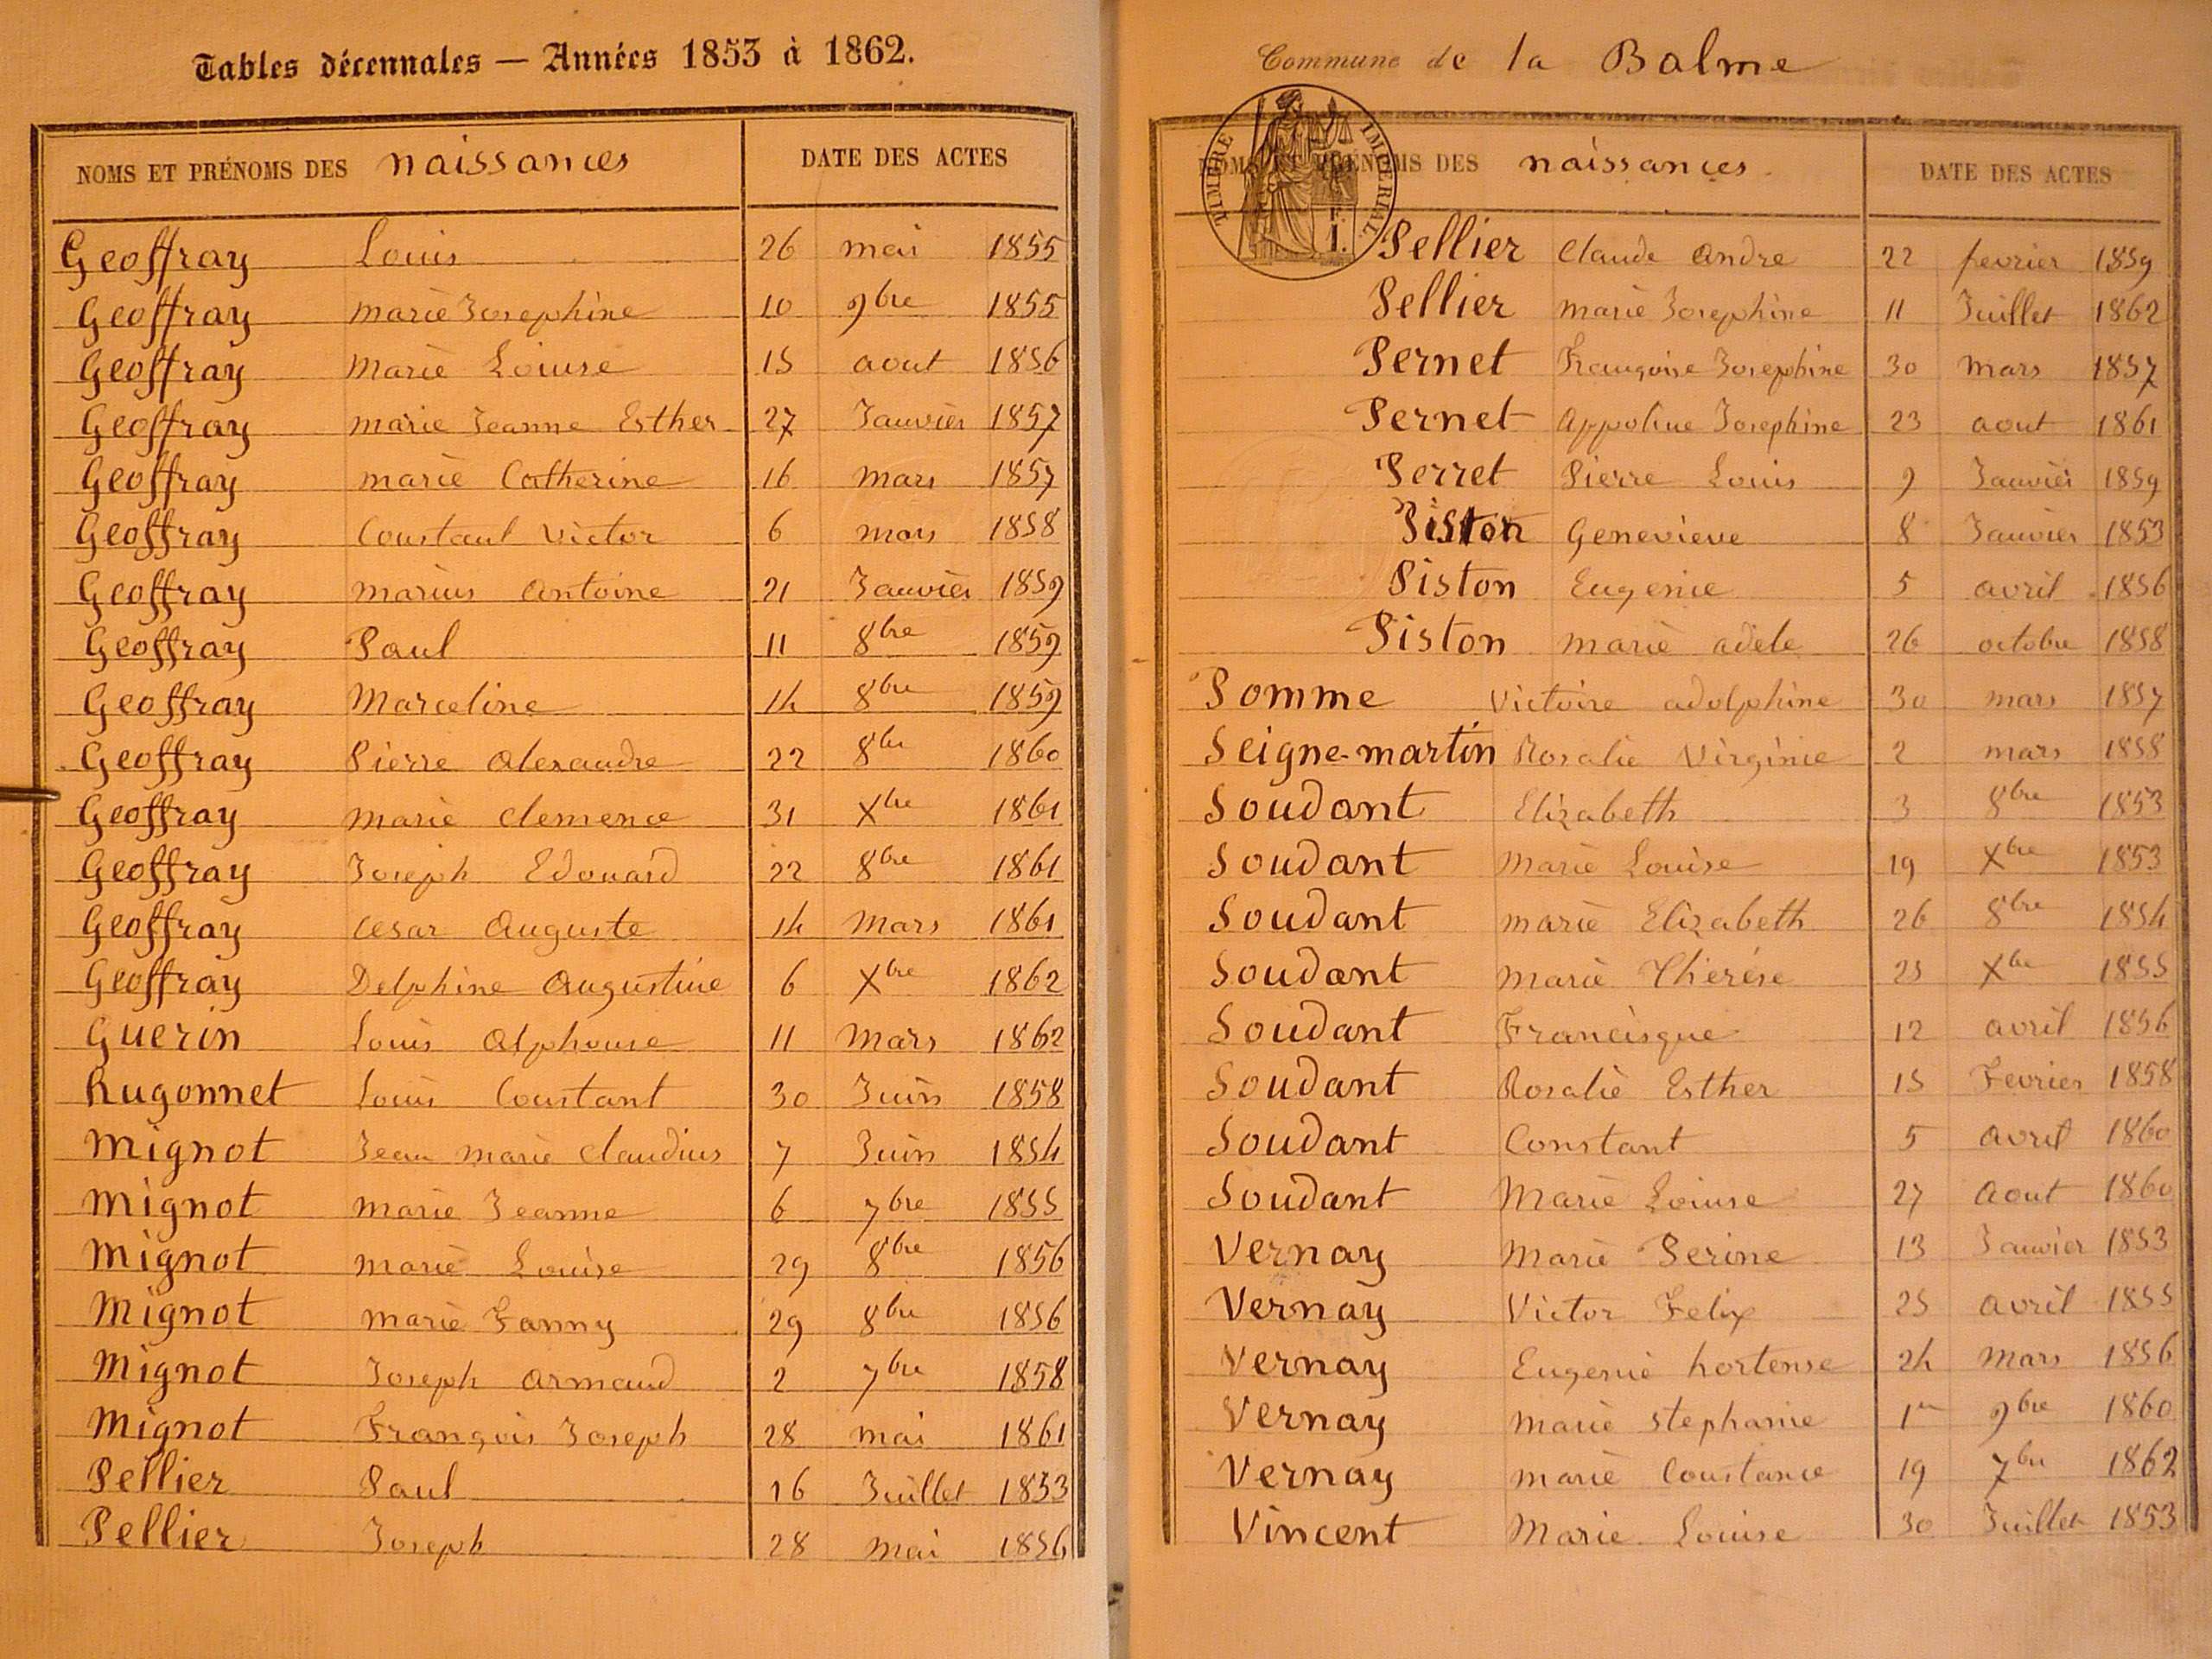 Tables décennales — Années 1853 à 1862.
NOMS ET PRÉNOMS DES naissances DATE DES ACTES
Geoffray Louis 26 mai 1855
Geoffray marie Josephine 10 9bre 1855
Geoffray Marie Louise 15 aout 1856
Geoffray marie Jeanne Esther 27 Janvier 1857
Geoffray marie Catherine 16 mars 1857
Geoffray Constant Victor 6 mars 1858
Geoffray marius Antoine 21 Janvier 1859
Geoffray Paul 11 8bre 1859
Geoffray Marceline 14 8bre 1859
Geoffray Pierre Alexandre 22 8bre 1860
Geoffray marie Clemence 31 Xbre 1861
Geoffray Joseph Edouard 22 8bre 1861
Geoffray Cesar Auguste 14 Mars 1861
Geoffray Delphine Augustine 6 Xbre 1862
Guerin Louis Alphonse 11 Mars 1862
hugonnet Louis Constant 30 Juin 1858
Mignot Jean marie Claudius 7 Juin 1854
Mignot marie Jeanne 6 7bre 1855
Mignot marie Louise 29 8bre 1856
Mignot marie Fanny 29 8bre 1856
Mignot Joseph Armand 2 7bre 1858
Mignot François Joseph 28 mai 1861
Pellier Paul 16 Juillet 1853
Pellier Joseph 28 mai 1856
Commune de la Balme
TIMBRE IMPÉRIAL
NOMS ET PRÉNOMS DES naissances DATE DES ACTES
Pellier Claude Andre 22 fevrier 1859
Pellier Marie Josephine 11 Juillet 1862
Pernet Françoise Josephine 30 mars 1857
Pernet Appoline Josephine 23 aout 1861
Perret Pierre Louis 9 Janvier 1859
Piston Genevieve 8 Janvier 1853
Piston Eugenie 5 avril 1856
Piston marie adele 26 octobre 1858
Pomme Victoire adolphine 30 mars 1857
Seigne-martin Rosalie Virginie 2 mars 1858
Soudant Elizabeth 3 8bre 1853
Soudant Marie Louise 19 Xbre 1853
Soudant marie Elizabeth 26 8bre 1854
Soudant Marie Thérése 25 Xbre 1855
Soudant Francisque 12 avril 1856
Soudant Rosalie Esther 15 Fevrier 1858
Soudant Constant 5 avril 1860
Soudant Marie Louise 27 Aout 1860
Vernay Marie Perine 13 Janvier 1853
Vernay Victor Felix 25 avril 1855
Vernay Eugenie hortense 24 Mars 1856
Vernay Marie Stephanie 1er 9bre 1860
Vernay Marie Constance 19 7bre 1862
Vincent Marie Louise 30 Juillet 1853